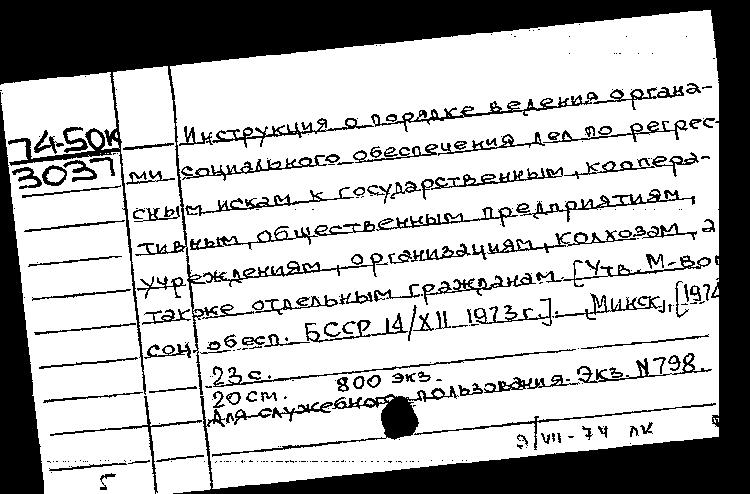 74-50к
3037
Инструкция о порядке ведения органа-
ми социального обеспечения дел по регрес-
сным искам к государственным, коопера-
тивным, общественным предприятиям,
учреждениям, организациям, колхозам, а
также отдельным гражданам. [Утв. М-вом
соц. обесп. БССР 14/XII 1973 г.]. Минск, [1974
23 с.
20 см. 800 экз.
Для служебного пользования. Экз. N 798.
9/VII-74 ЛК
5